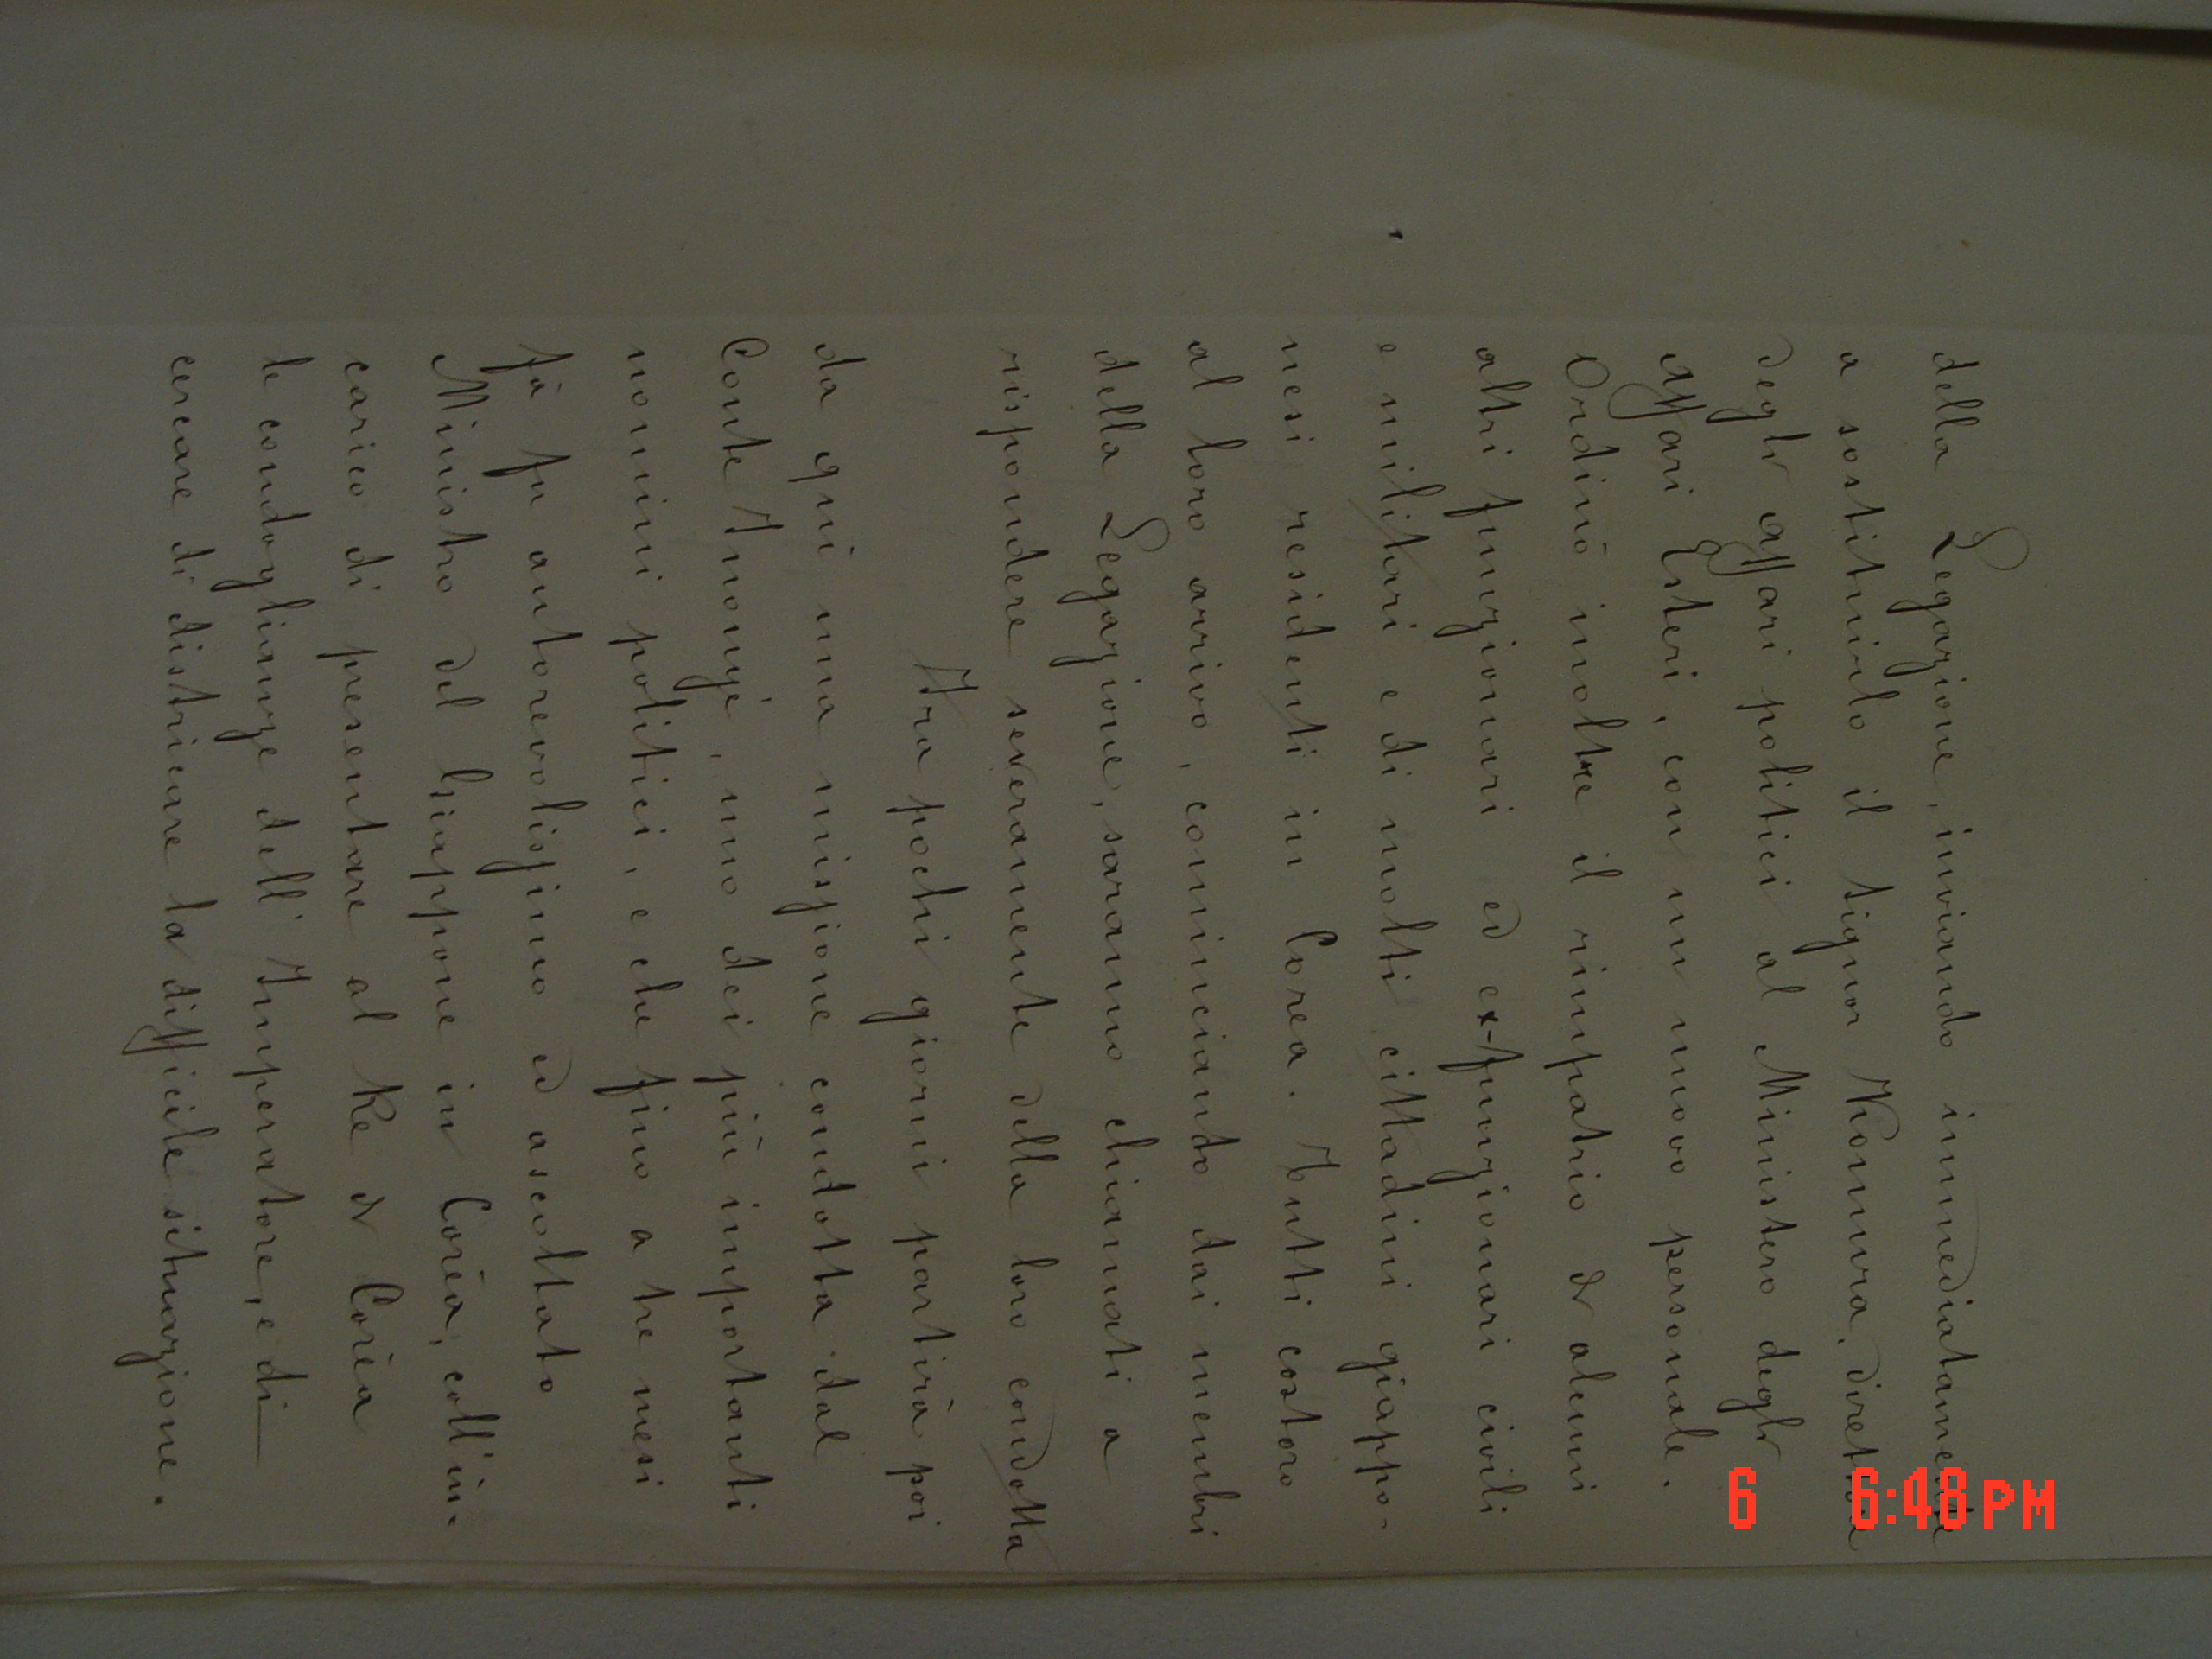 della Legazione, inviando immediatamente
a sostituirlo il signor Komura, direttore
degli affari politici al Ministero degli
affari Esteri, con un nuovo personale.
Ordinò inoltre il rimpatrio di alcuni
altri funzionari ed ex-funzionari civili
e militari e di molti cittadini giappo-
nesi residenti in Corea. Tutti costoro
al loro arrivo, cominciando dai membri
della Legazione, saranno chiamati a
rispondere severamente della loro condotta
Fra pochi giorni partirà poi
da qui una missione condotta dal
Conte Inouyé, uno dei più importanti
uomini politici, e che fino a tre mesi
fà fu autorevolissimo ed ascoltato
Ministro del Giappone in Corèa, coll'in-
carico di presentare al Re di Corèa
le condoglianze dell'Imperatore, e di
cercare di districare la difficile situazione.
6 6:48 PM